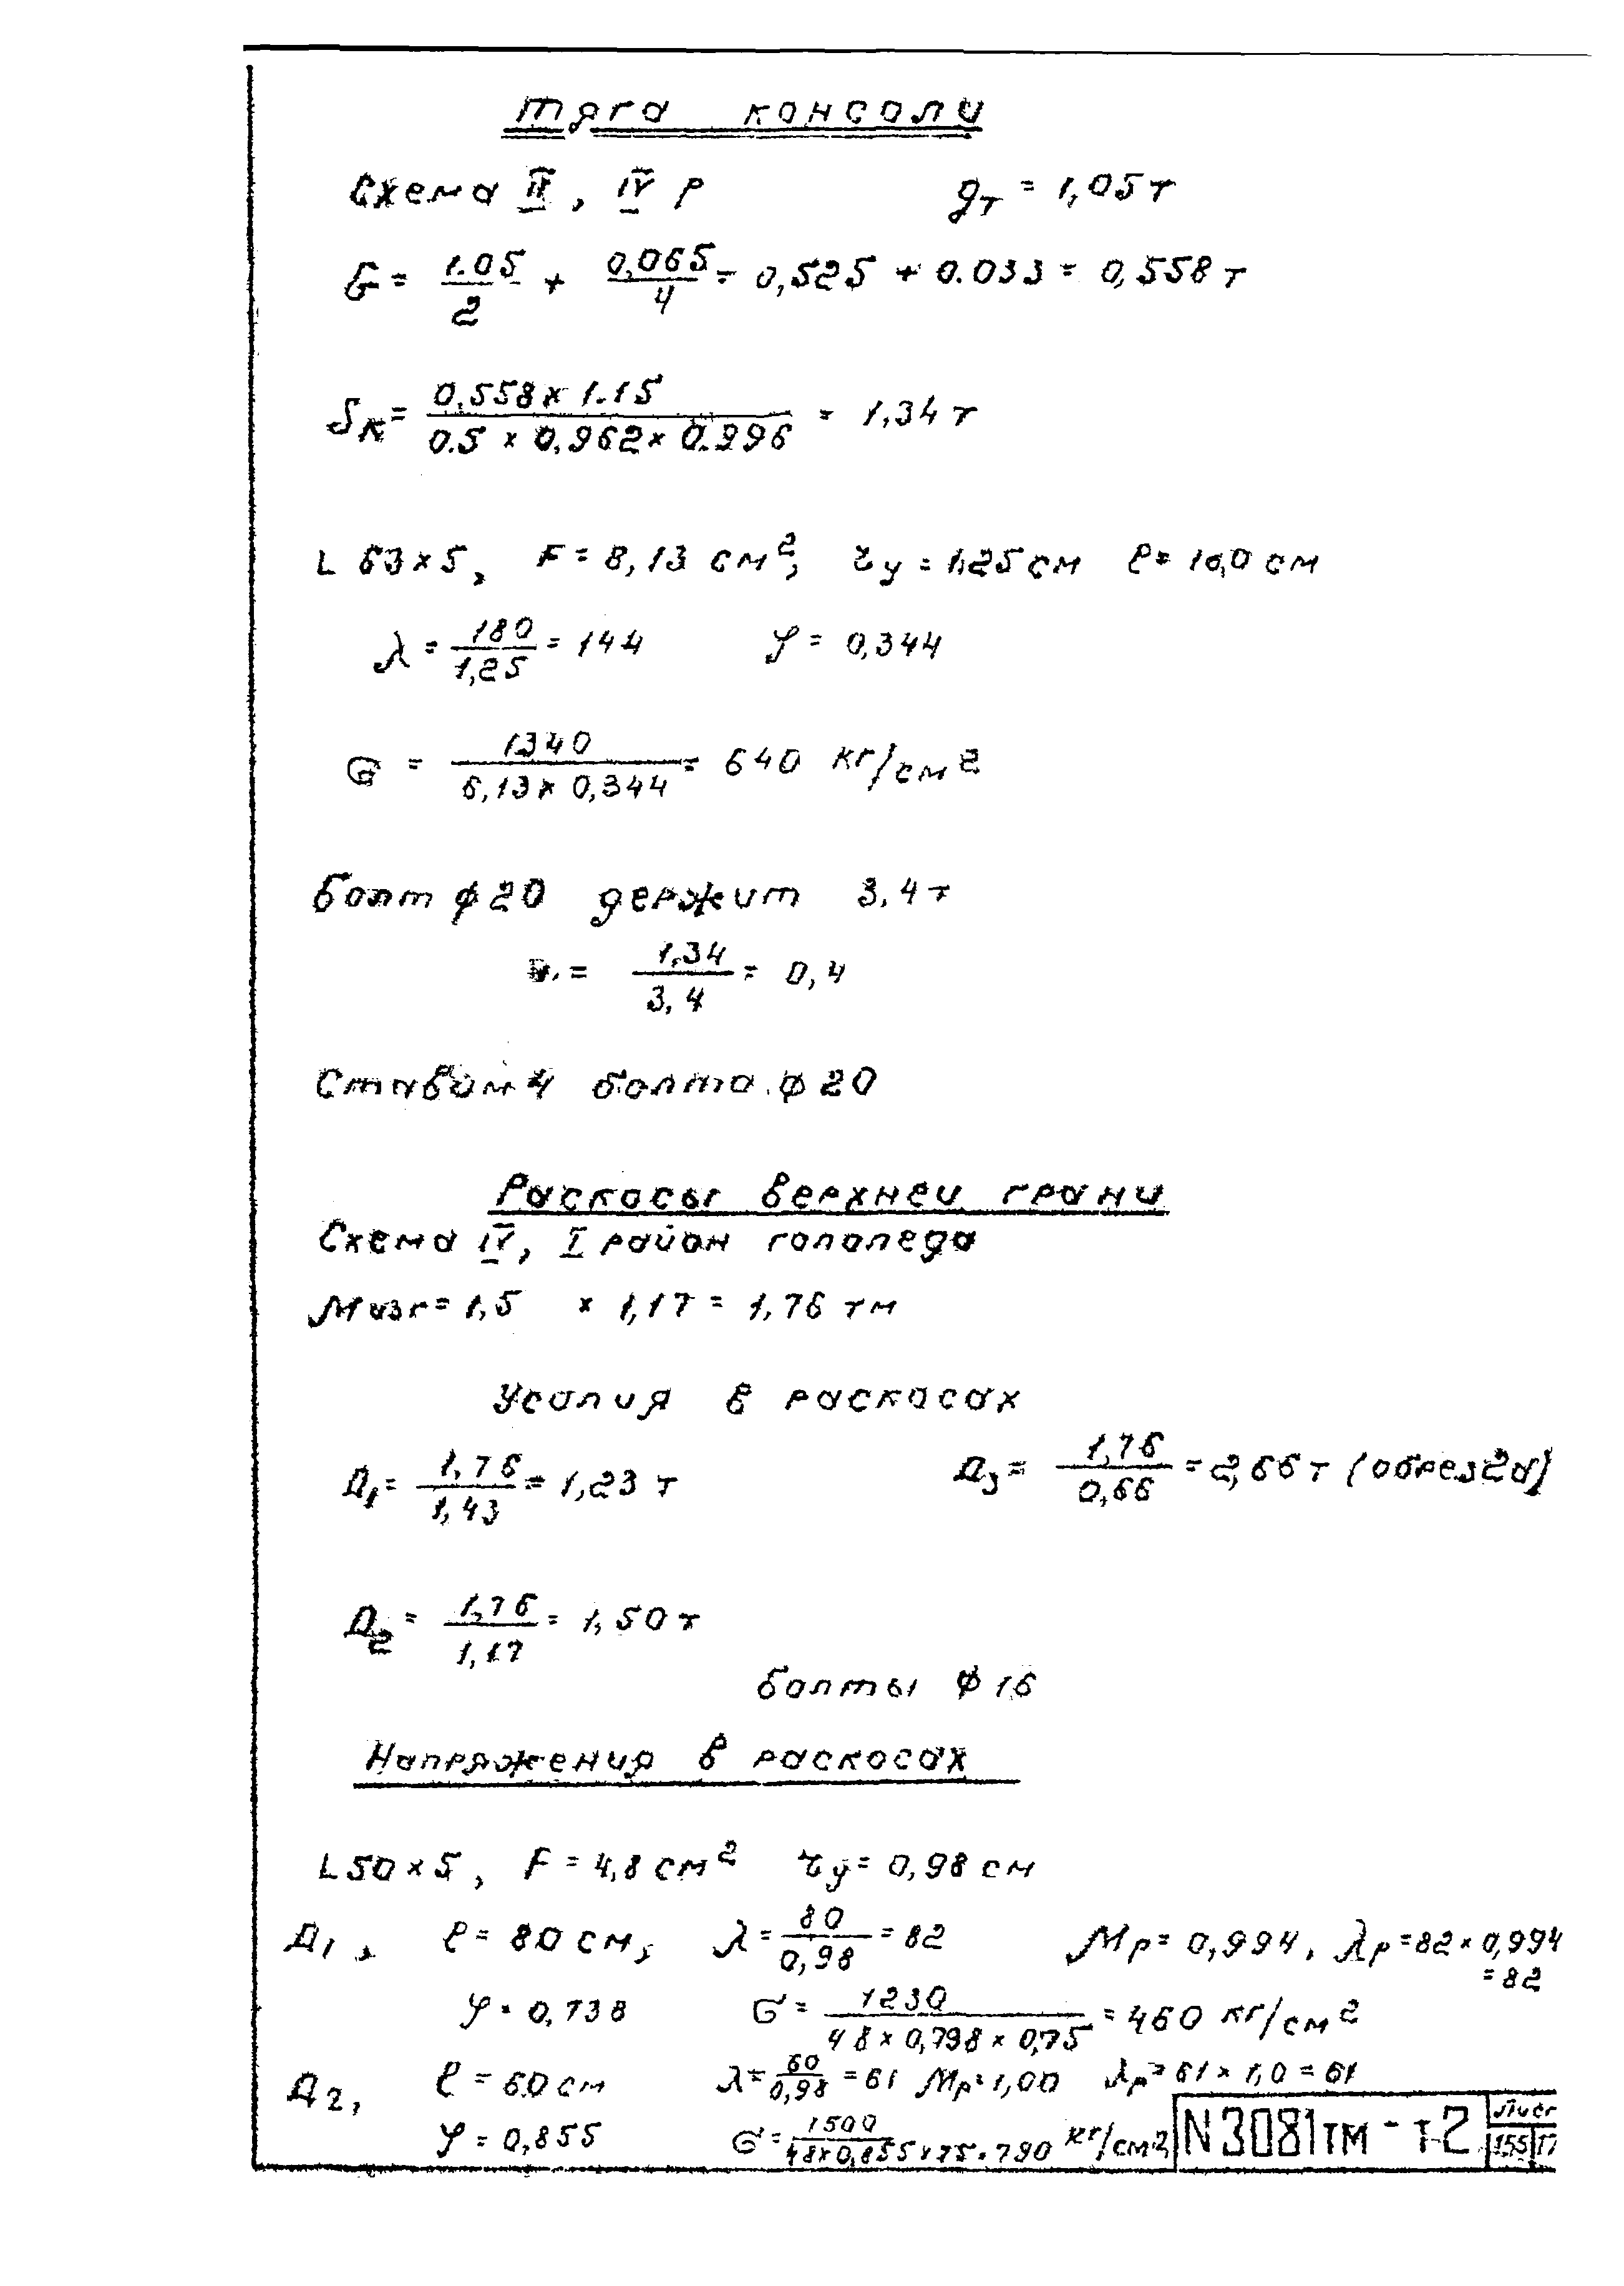 Тяга консоли
Схема II, IV р gт = 1,05 т
G = 1.05/2 + 0,065/4 = 0,525 + 0.033 = 0,558 т
Sк = 0,558 × 1.15 / 0.5 × 0,962 × 0.996 = 1,34 т
L 63×5, F = 6,13 см², ry = 1,25 см ℓ = см
λ = 180/1,25 = 144 φ = 0,344
σ = 1340 / 6,13 × 0,344 = 640 кг/см²
Болт φ20 держит 3,4 т
= 1,34/3,4 = 0,4
Ставим 4 болта φ20
Раскосы верхней грани
Схема IV, I район гололеда
Mизг = 1,5 × 1,17 = 1,76 тм
Усилия в раскосах
Д1 = 1,76/1,43 = 1,23 т Д3 = 1,76/0,66 = 2,66 т (обрез2а)
Д2 = 1,76/1,17 = 1,50 т
болты φ16
Напряжения в раскосах
L50×5, F = 4,8 см² ry = 0,98 см
Д1, ℓ = 80 см, λ = 80/0,98 = 82 Mр = 0,994, λр = 82 × 0,994
= 82
φ = 0,738 σ = 1230 / 4,8 × 0,798 × 0,75 = 460 кг/см²
Д2, ℓ = 60 см λ = 60/0,98 = 61 Mр = 1,00 λр = 61 × 1,0 = 61
φ = 0,855 σ = 1500 / 4,8×0,855×75 = 790 кг/см²
N3081тм-т2
Лист
155